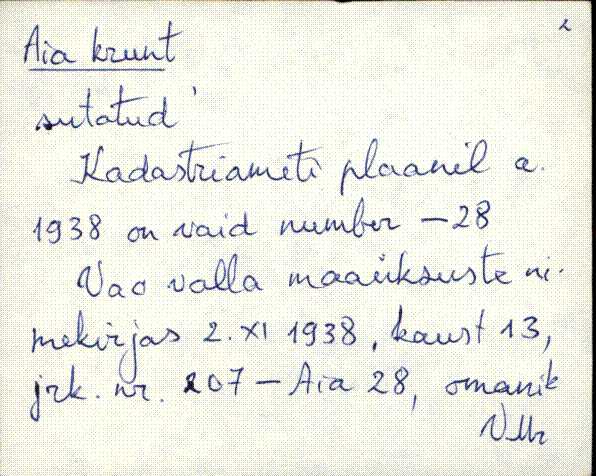 2
Aia krunt
sutatud
Kadastriameti plaanil a.
1938 on vaid number - 28
Vao valla maaüksuste ni-
mekirjas 2. XI 1938, kaust 13,
jrk. nr. 207 - Aia 28, omanik